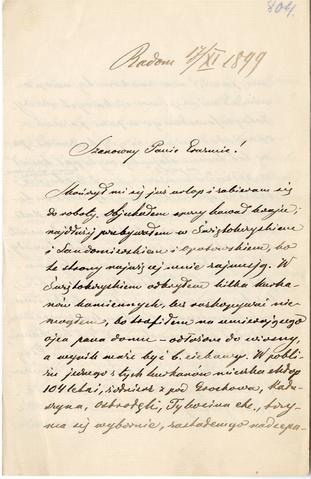 804.
Radom 17/XI 1899
Szanowny Panie Erazmie!
Skończył mi się już urlop i zabieram się
do roboty. Objechałem spory kawał kraju;
najdłużej przebywałem w Świętokrzyskiem
i Sandomierskiem i Opatowskiem, bo
te strony najwięcej mnie zajmują. W
Świętokrzyskiem odkryłem kilka kurha-
nów kamiennych, lecz rozkopywać nie
mogłem, bo trafiłem na umierającego
ojca pana domu – odłożono do wiosny,
a wynik może być b. ciekawy. W pobli-
żu jednego z tych kurhanów mieszka chłop
104 letni, żołnierz z pod Grochowa, Kału-
szyna, Ostrołęki, Tykocina etc., trzy-
ma się wybornie, zastałem go